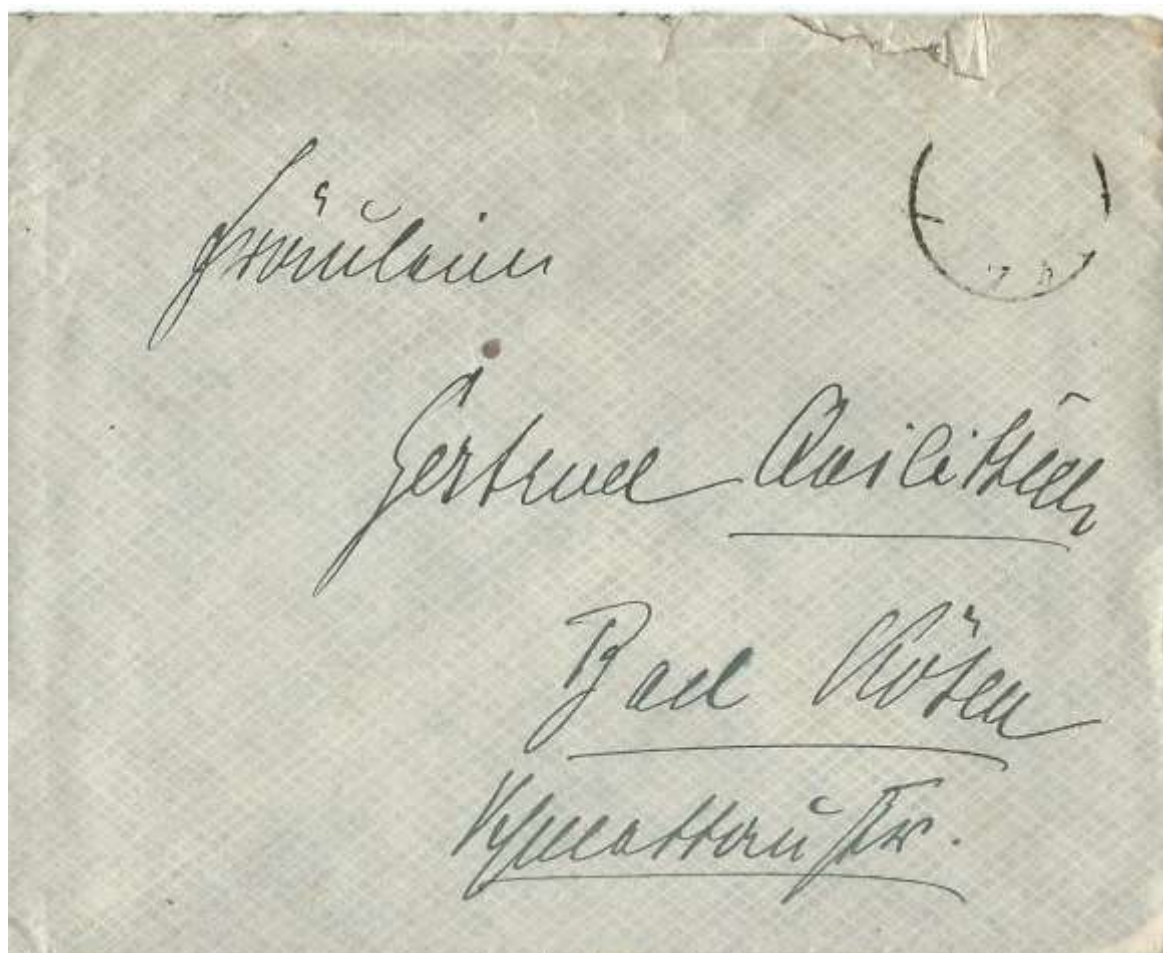 Fräulein
Gertrud Quilitzsch
Bad Kösen
Schmettaustr.